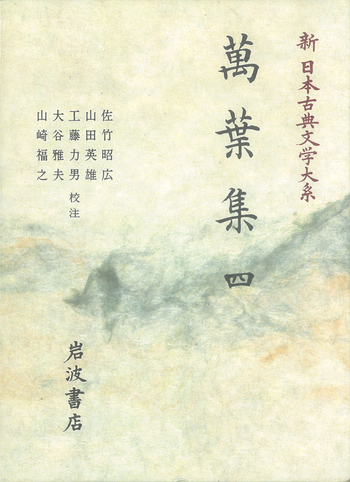 新 日本古典文学大系
萬葉集 四
佐竹昭広
山田英雄
工藤力男 校注
大谷雅夫
山崎福之
岩波書店